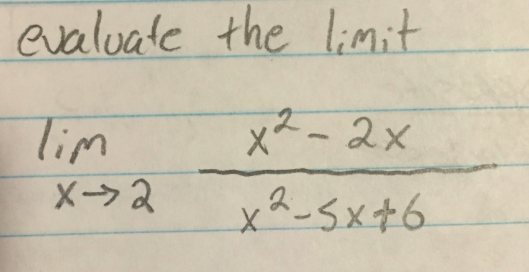 evaluate the limit
lim x→2 (x² - 2x)/(x² - 5x + 6)